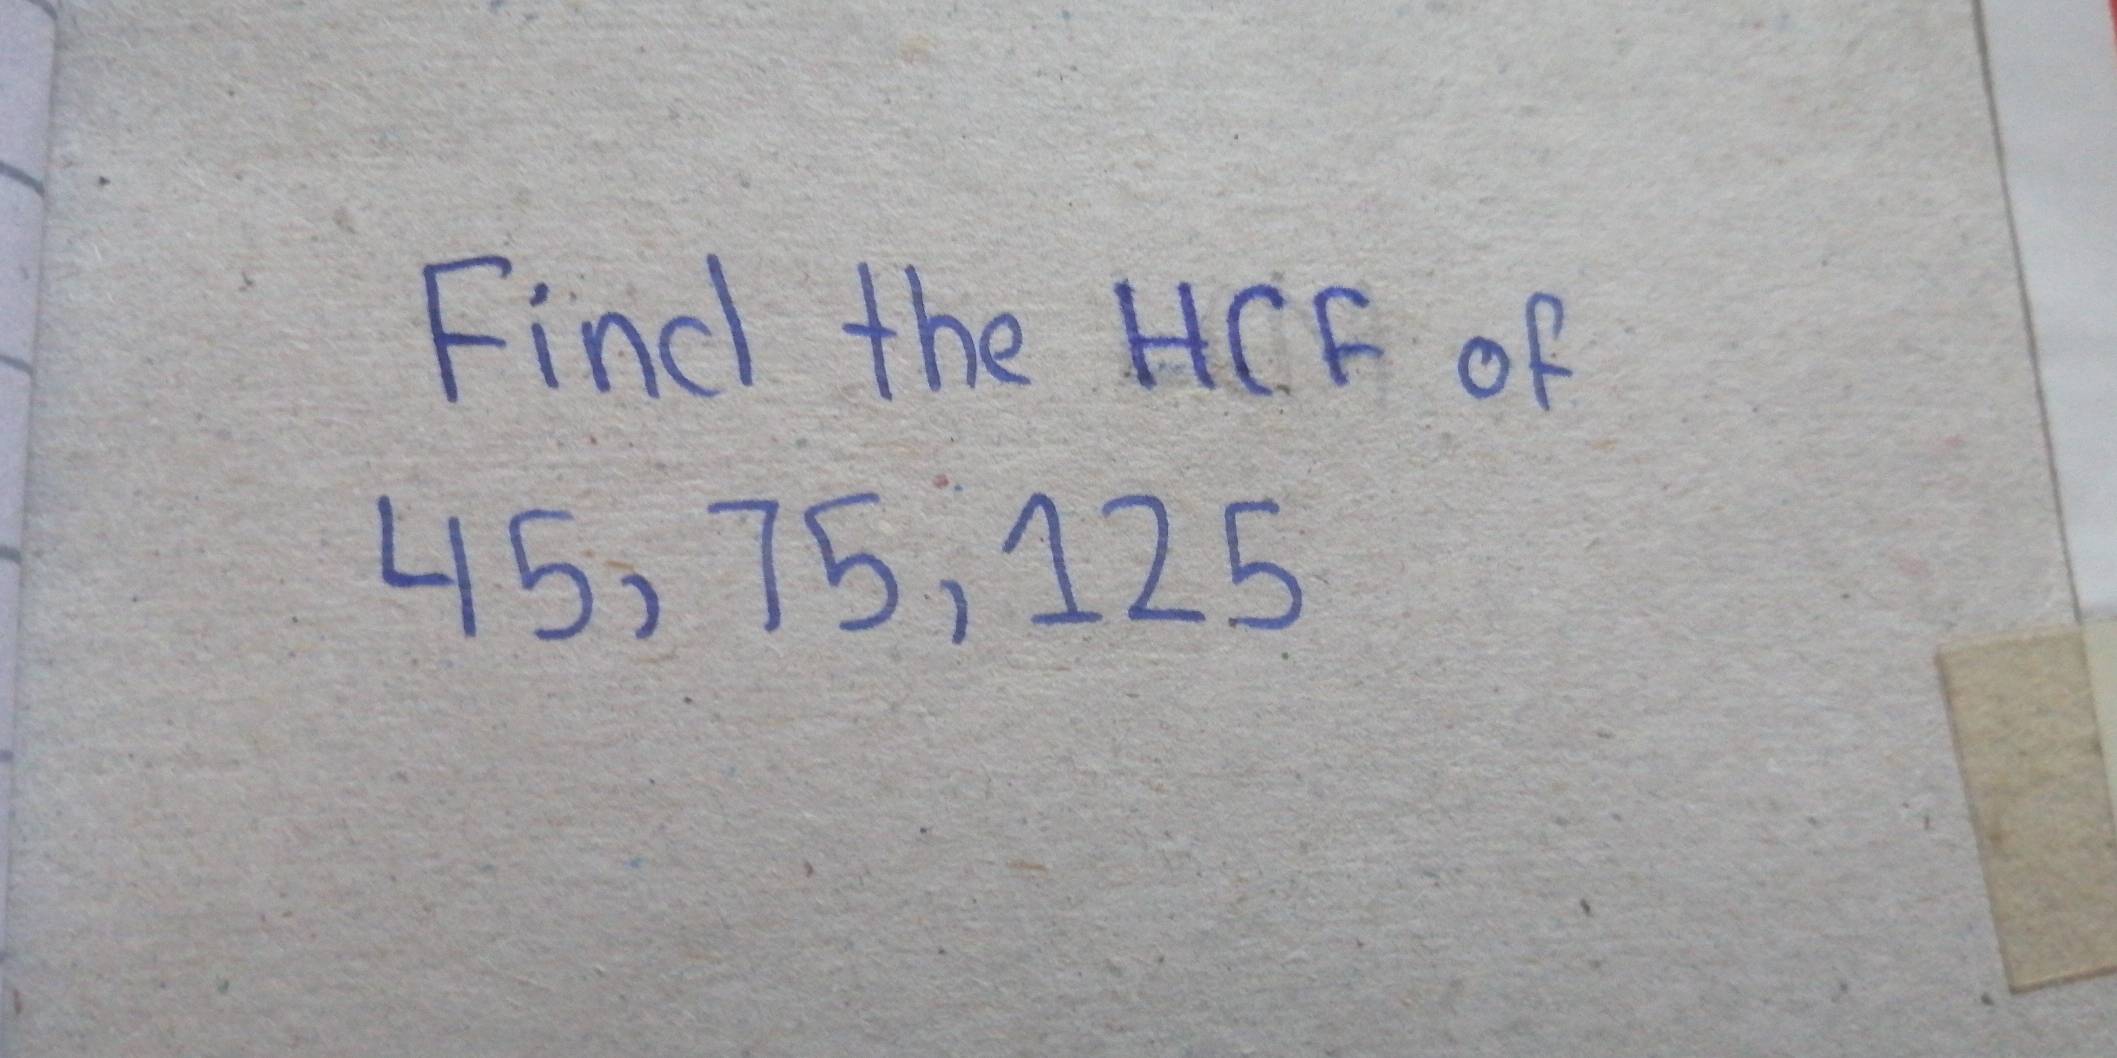 Find the HCF of
45, 75, 125